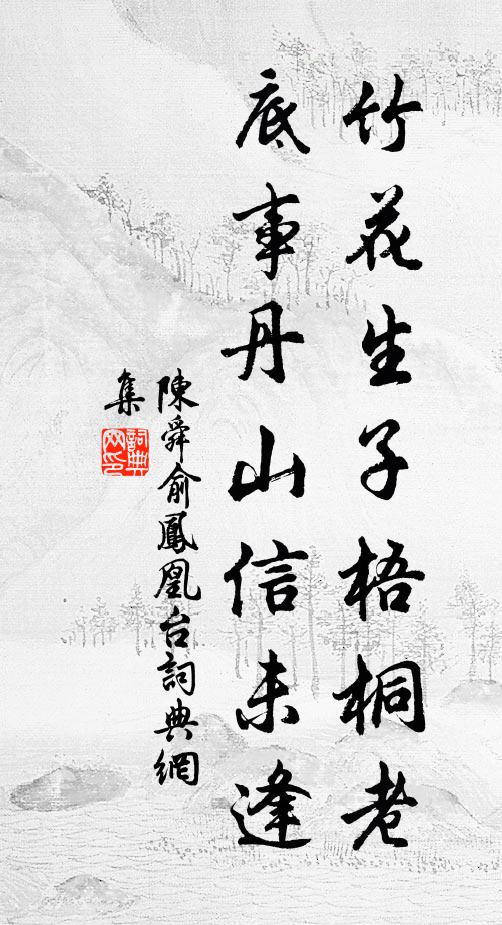 竹花生子梧桐老
底事丹山信未逢
陳舜俞鳳凰台詞典網
集
詞典
网印